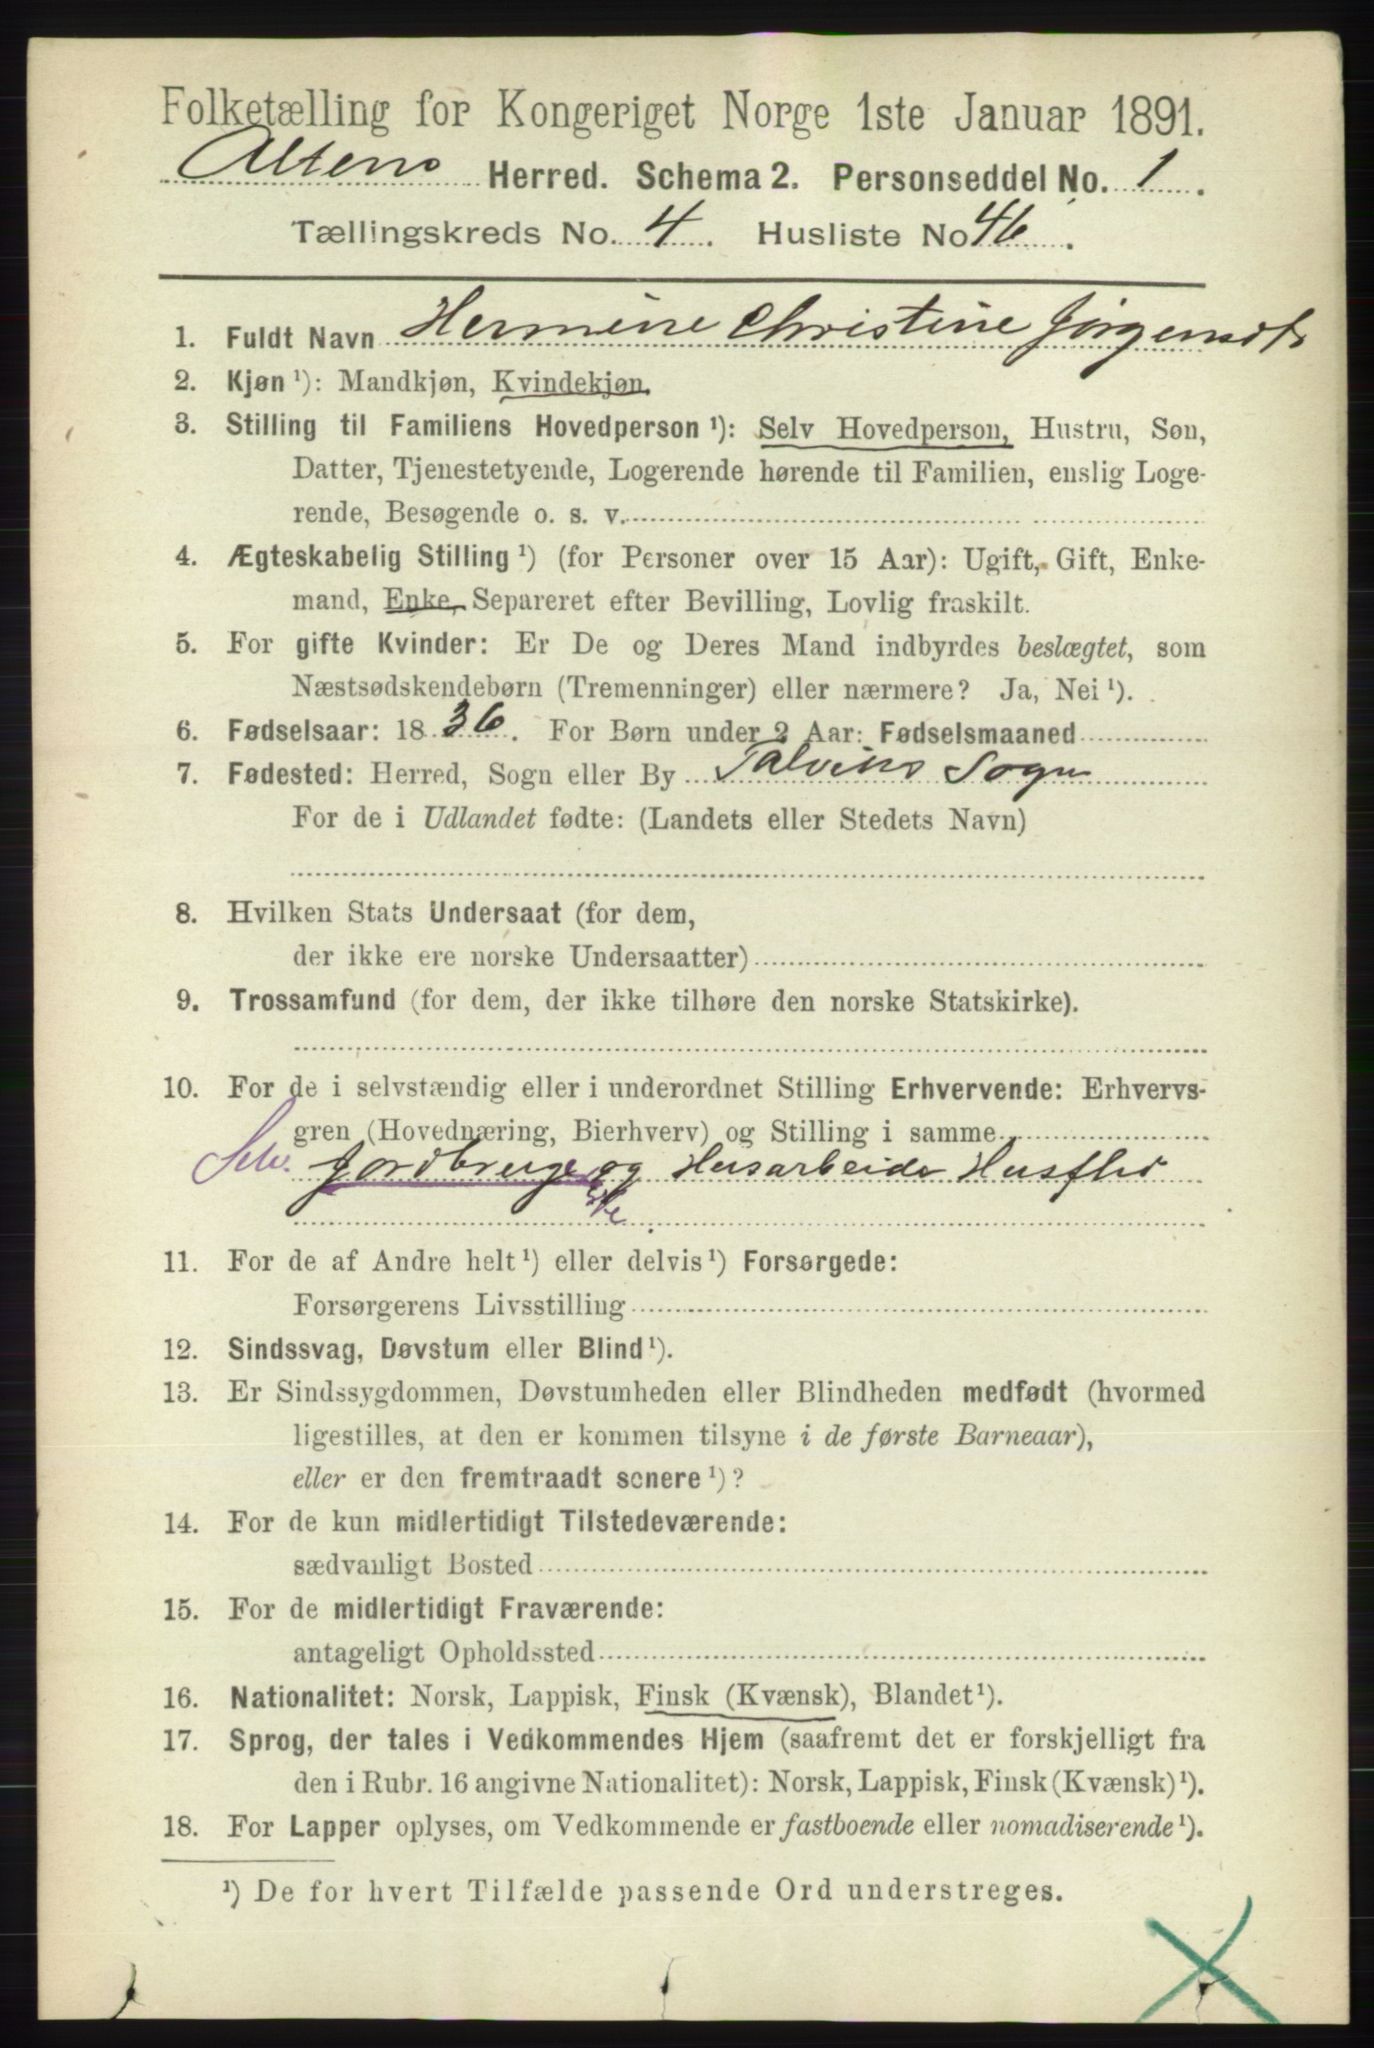 Folketælling for Kongeriget Norge 1ste Januar 1891.
Alten Herred. Schema 2. Personseddel No. 1.
Tællingskreds No. 4. Husliste No 46.
1. Fuldt Navn Hermine Christine Jørgensdt
2. Kjøn ¹): Mandkjøn, Kvindekjøn.
3. Stilling til Familiens Hovedperson ¹): Selv Hovedperson, Hustru, Søn,
Datter, Tjenestetyende, Logerende hørende til Familien, enslig Loge-
rende, Besøgende o. s. v.
4. Ægteskabelig Stilling ¹) (for Personer over 15 Aar): Ugift, Gift, Enke-
mand, Enke, Separeret efter Bevilling, Lovlig fraskilt.
5. For gifte Kvinder: Er De og Deres Mand indbyrdes beslægtet, som
Næstsødskendebørn (Tremenninger) eller nærmere? Ja, Nei ¹).
6. Fødselsaar: 1836. For Børn under 2 Aar: Fødselsmaaned
7. Fødested: Herred, Sogn eller By Talviks Sogn
For de i Udlandet fødte: (Landets eller Stedets Navn)
8. Hvilken Stats Undersaat (for dem,
der ikke ere norske Undersaatter)
9. Trossamfund (for dem, der ikke tilhøre den norske Statskirke).
10. For de i selvstændig eller i underordnet Stilling Erhvervende: Erhvervs-
gren (Hovednæring, Bierhverv) og Stilling i samme
Selv. Jordbruge og Husarbeide Husflid
11. For de af Andre helt ¹) eller delvis ¹) Forsørgede:
Forsørgerens Livsstilling
12. Sindssvag, Døvstum eller Blind ¹).
13. Er Sindssygdommen, Døvstumheden eller Blindheden medfødt (hvormed
ligestilles, at den er kommen tilsyne i de første Barneaar),
eller er den fremtraadt senere ¹)?
14. For de kun midlertidigt Tilstedeværende:
sædvanligt Bosted
15. For de midlertidigt Fraværende:
antageligt Opholdssted
16. Nationalitet: Norsk, Lappisk, Finsk (Kvænsk), Blandet ¹).
17. Sprog, der tales i Vedkommendes Hjem (saafremt det er forskjelligt fra
den i Rubr. 16 angivne Nationalitet): Norsk, Lappisk, Finsk (Kvænsk) ¹).
18. For Lapper oplyses, om Vedkommende er fastboende eller nomadiserende ¹).
¹) De for hvert Tilfælde passende Ord understreges.